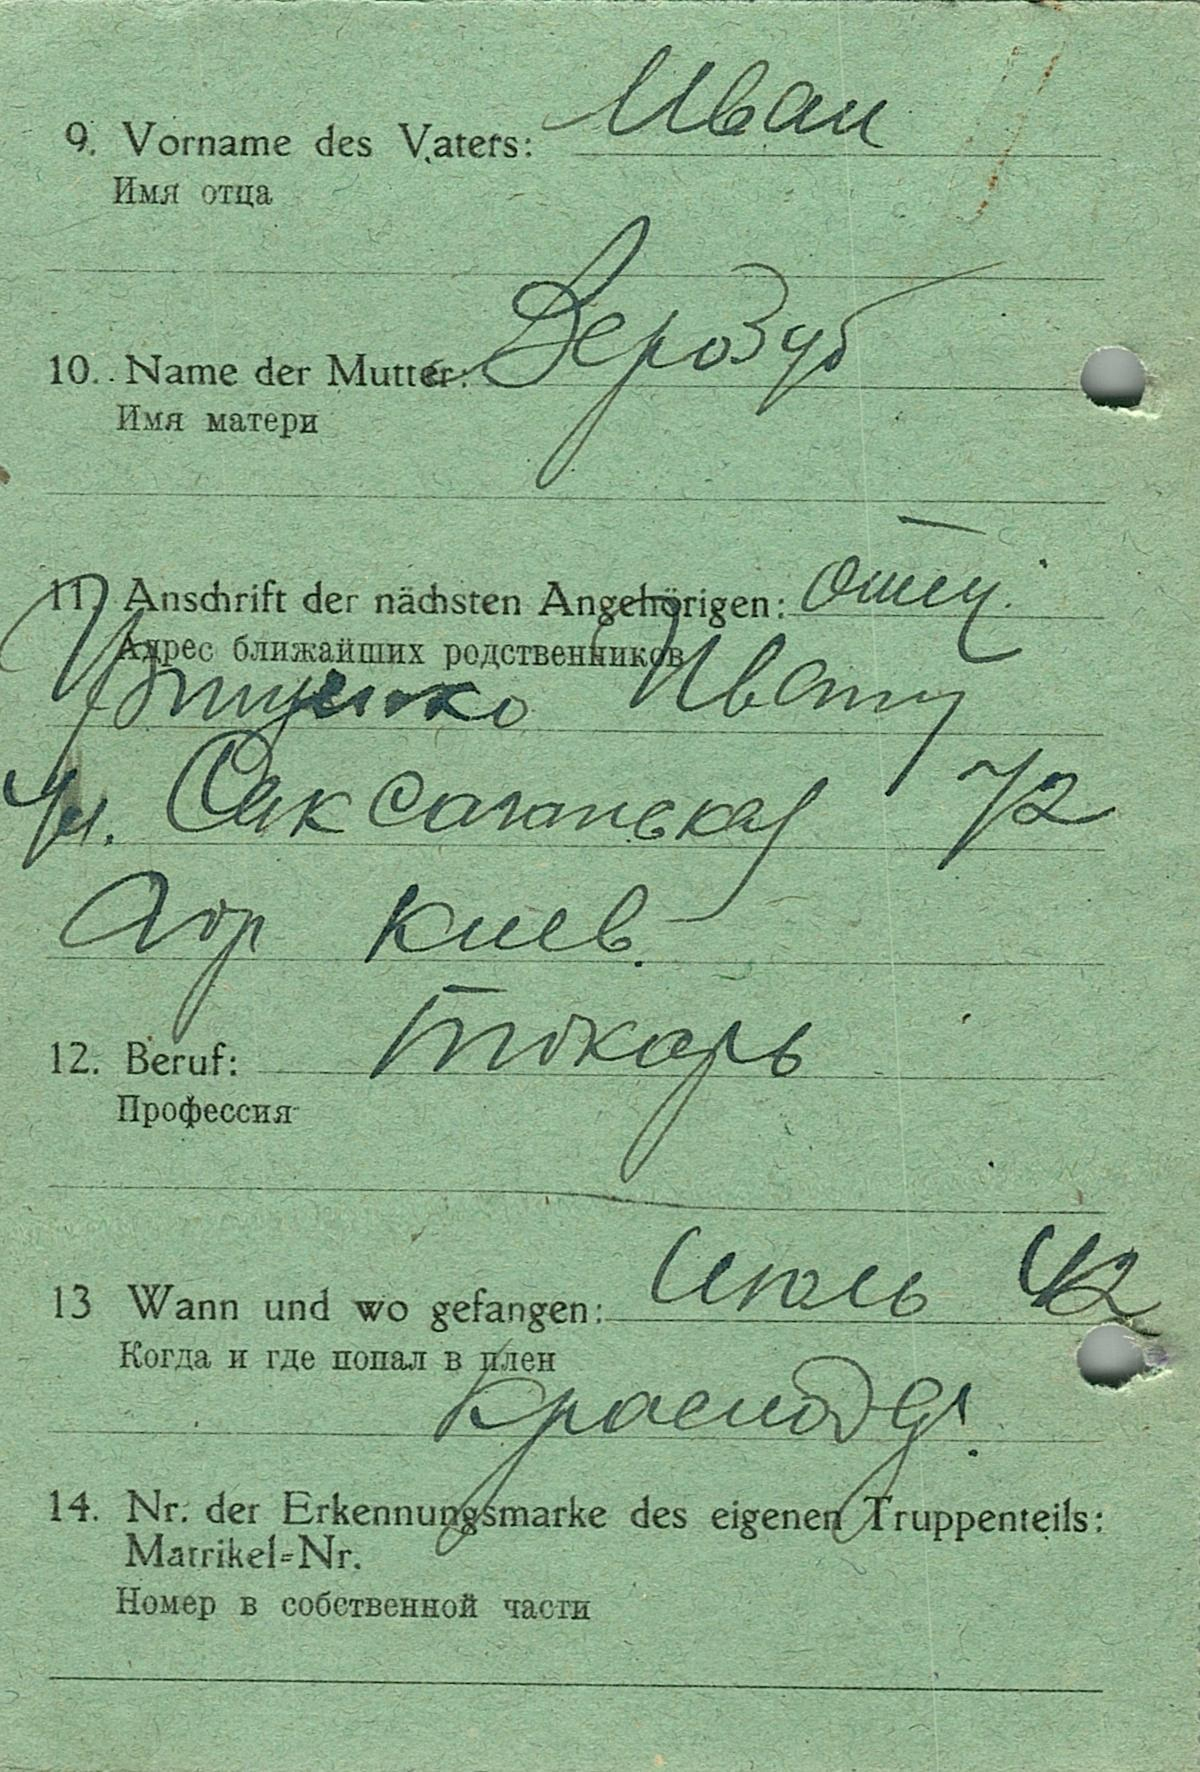 9. Vorname des Vaters: Иван
Имя отца
10. Name der Mutter: Верозуб
Имя матери
11. Anschrift der nächsten Angehörigen: отец.
Адрес ближайших родственников
Ивану
ул. Саксаганская 72
гор Киев.
12. Beruf: токарь
Профессия
13 Wann und wo gefangen: Июль 42
Когда и где попал в плен
Краснод
14. Nr. der Erkennungsmarke des eigenen Truppenteils:
Matrikel=Nr.
Номер в собственной части